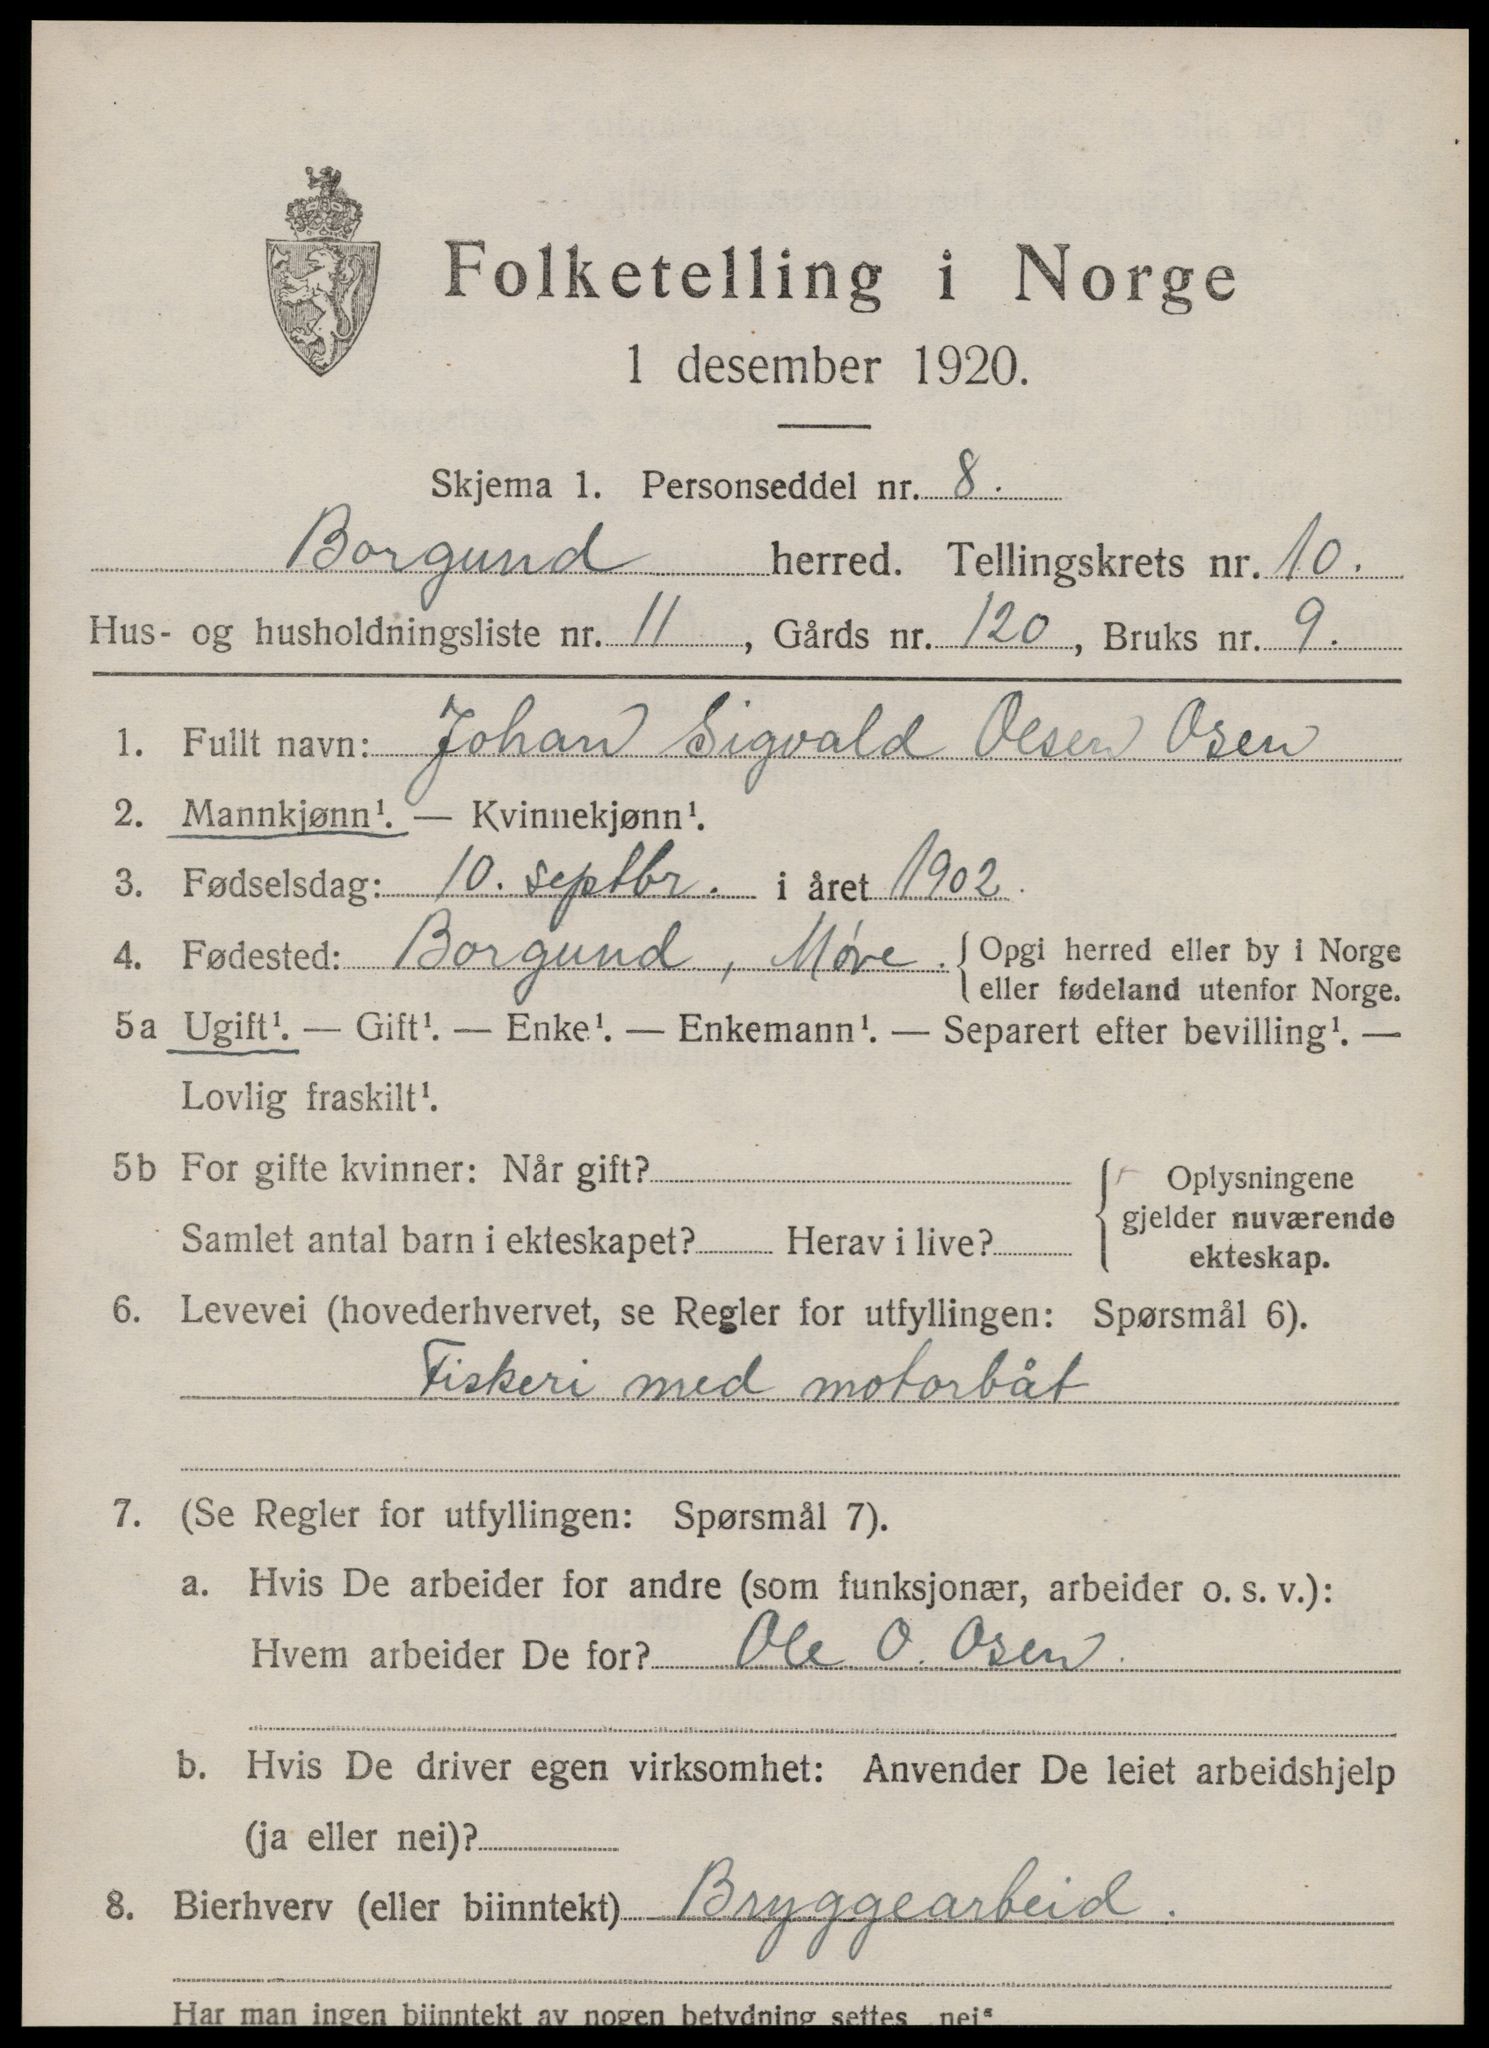 Folketelling i Norge
1 desember 1920.
Skjema 1. Personseddel nr. 8.
Borgund herred. Tellingskrets nr. 10.
Hus- og husholdningsliste nr. 11, Gårds nr. 120, Bruks nr. 9.
1. Fullt navn: Johan Sigvald Olsen Osen
2. Mannkjønn¹. — Kvinnekjønn¹.
3. Fødselsdag: 10. septbr. i året 1902.
4. Fødested: Borgund, Møre. { Opgi herred eller by i Norge
eller fødeland utenfor Norge.
5a Ugift¹. — Gift¹. — Enke¹. — Enkemann¹. — Separert efter bevilling¹. —
Lovlig fraskilt¹.
5b For gifte kvinner: Når gift?
Samlet antal barn i ekteskapet? Herav i live?
Oplysningene
gjelder nuværende
ekteskap.
6. Levevei (hovederhvervet, se Regler for utfyllingen: Spørsmål 6).
Fiskeri med motorbåt
7. (Se Regler for utfyllingen: Spørsmål 7).
a. Hvis De arbeider for andre (som funksjonær, arbeider o. s. v.):
Hvem arbeider De for? Ole O. Osen.
b. Hvis De driver egen virksomhet: Anvender De leiet arbeidshjelp
(ja eller nei)?
8. Bierhverv (eller biinntekt) Bryggearbeid.
Har man ingen biinntekt av nogen betydning settes „nei“